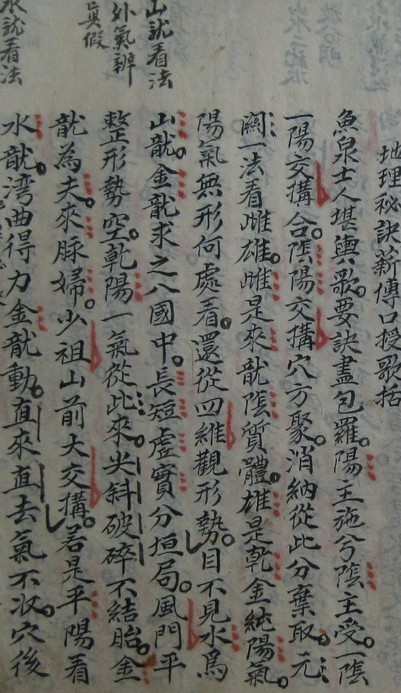 地理秘訣薪傳口授歌括
魚泉士人堪輿歌。要訣盡包羅。陽主施兮陰主受。一陰
一陽交搆合。陰陽交搆穴方聚。消納從此分棄取。元
關一法看雌雄。雌是來龍陰質體。雄是乾金純陽氣。
陽氣無形何處看。還從四維觀形勢。目不見水為
山龍。金龍求之八國中。長短虛實分垣局。風門平
整形勢空。乾陽一氣從此來。尖斜破碎不結胎。金
龍為夫。來脉婦。少祖山前大交搆。若是平陽看
水龍。灣曲得力金龍動。直來直去氣不收。穴後
山龍看法
外氣辨
真假
水龍看法